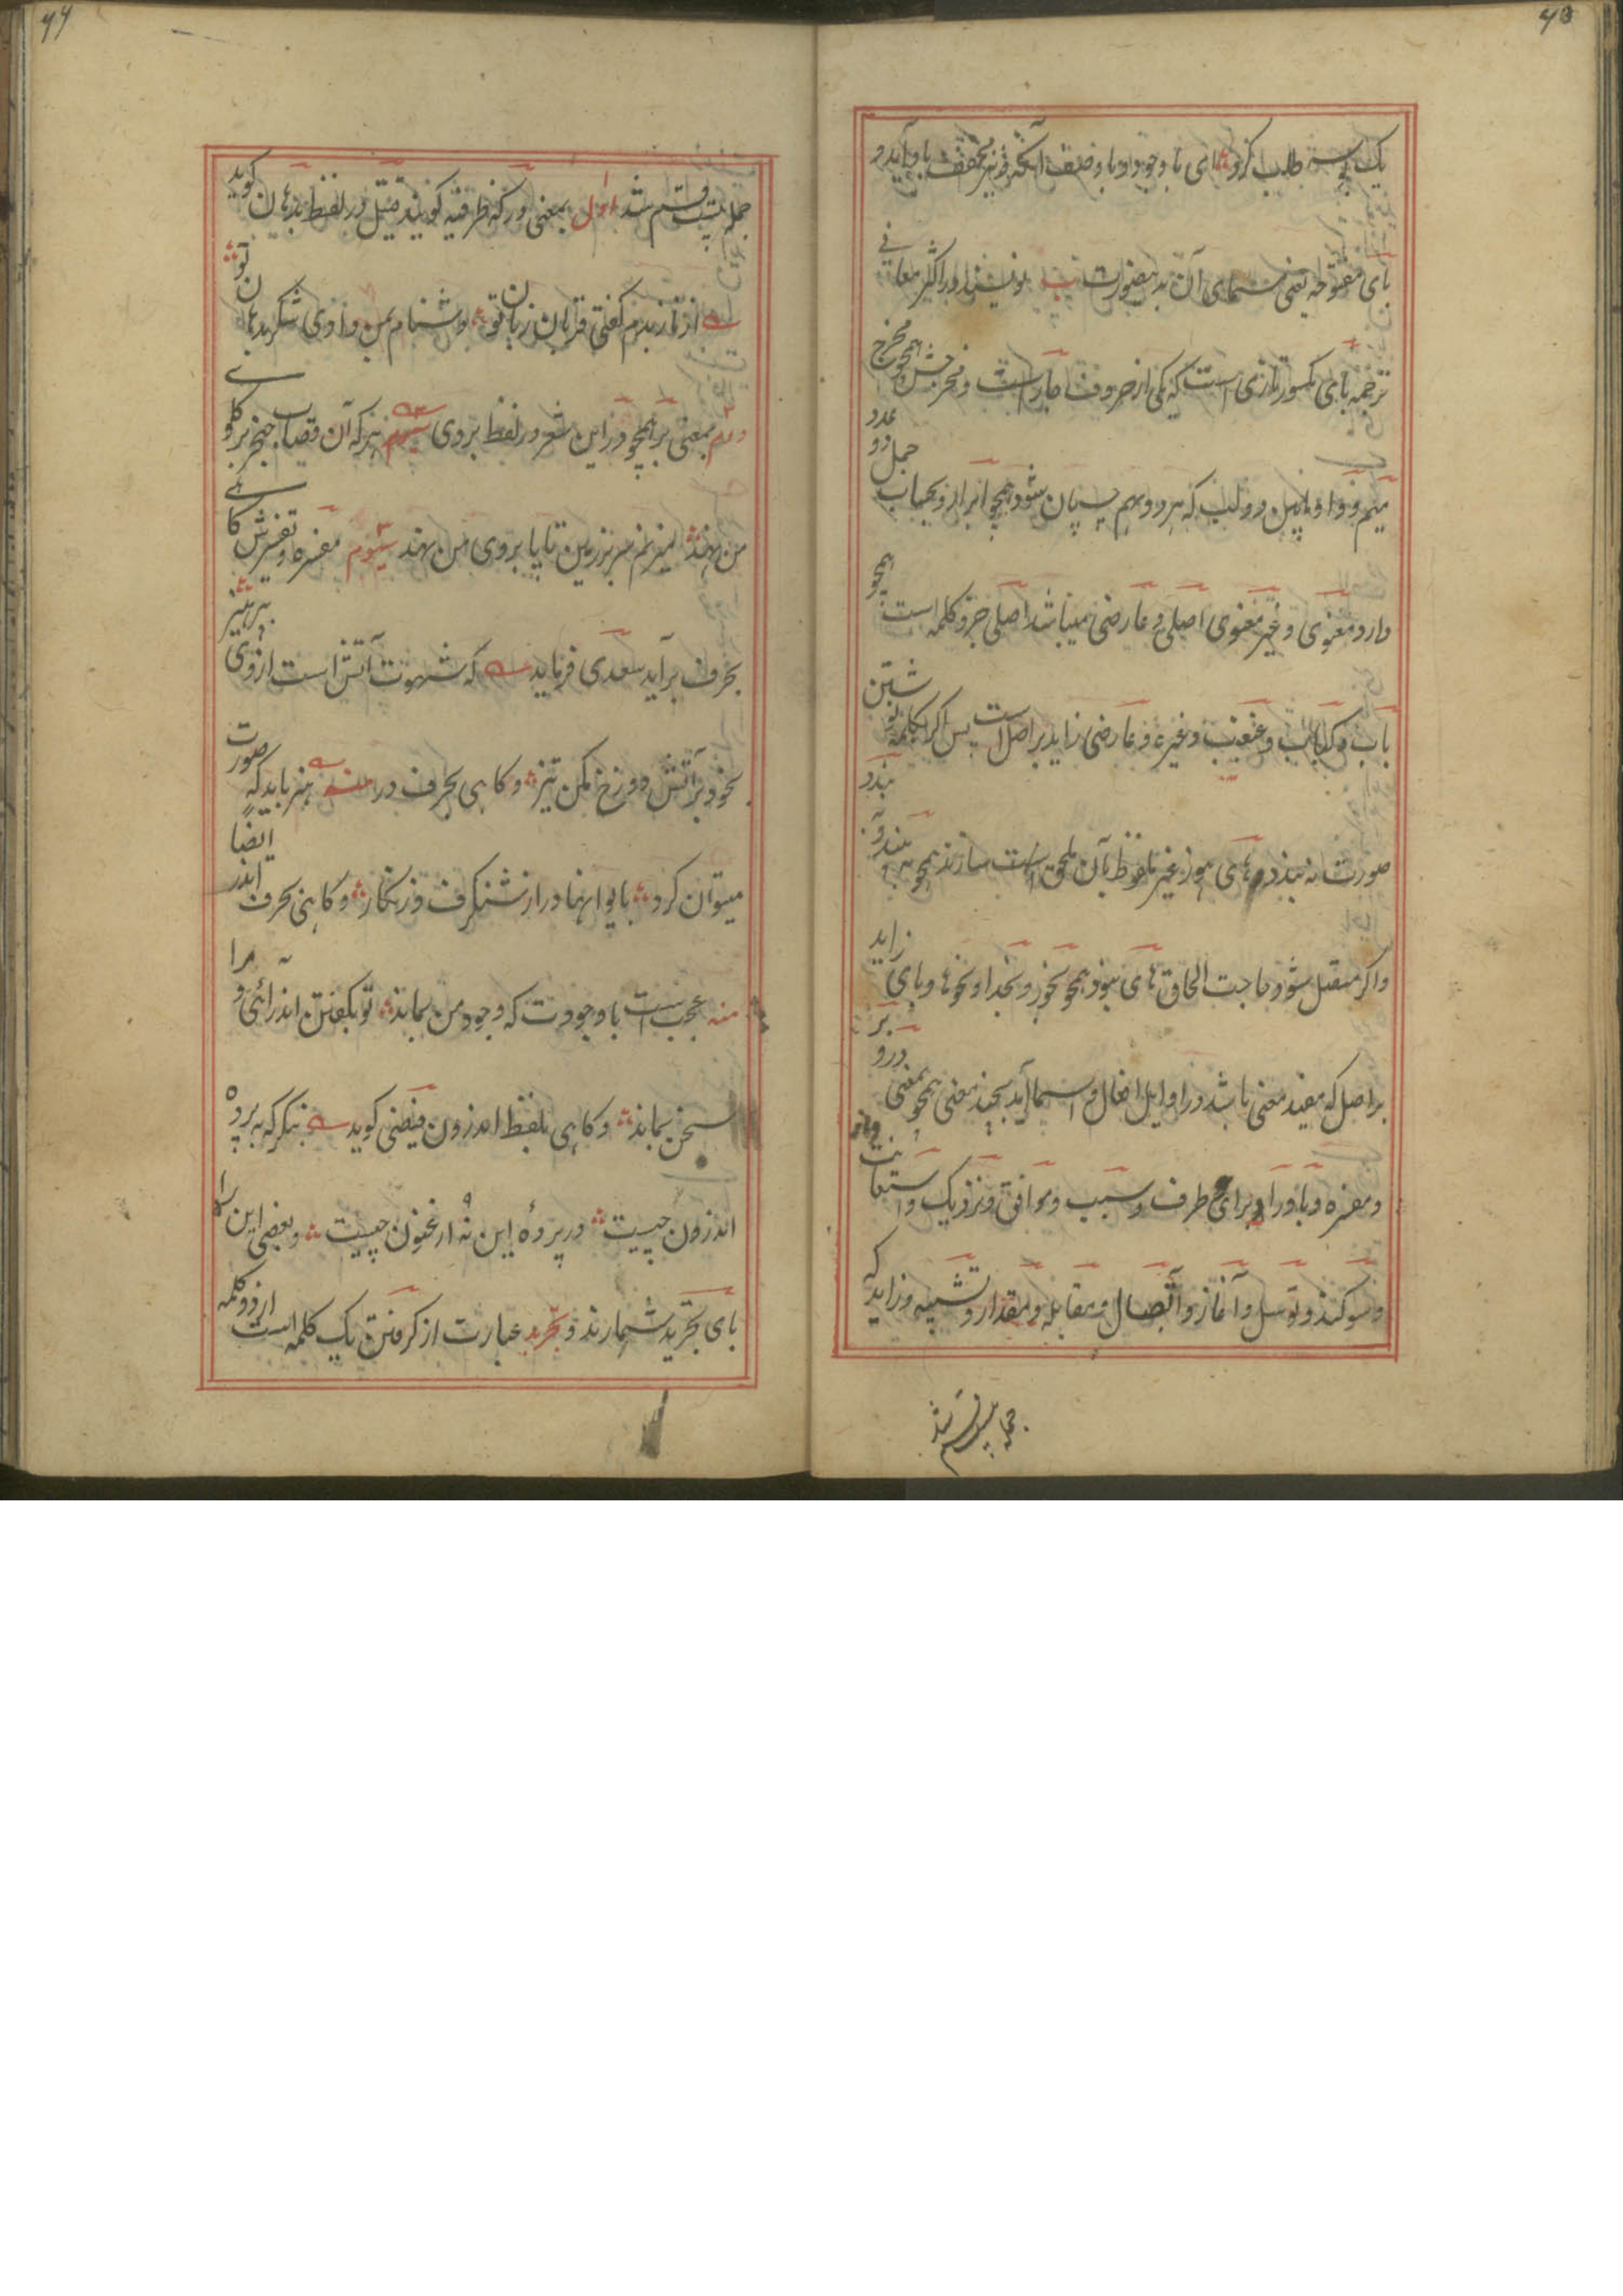 ۶۵
یک بوسه طلب کرد ای با وجود او با وصف آنکه و نیز مخفف با و آید و
بای مفتوحه یعنی مسمای آن بدینصورت ب نویسند او را اکثر معانی
ترجمه بای مکسور تازی است که یکی از حروف جار است و مخرجش همچو مخرج
میم و واو مابین دو لب که هر دو بهم چسپان شود همچو ابر ابر و بحساب جمل دو عدد
دارد معنوی و غیر معنوی اصلی و عارضی میباشد اصلی جزو کلمه است همچو
باب و کباب و عقیب و غیره و عارضی زاید بر اصل است پس اگر بکلمه نوشتن
صورت نه بندد های هوز غیر ملفوظ بآن ملحق است سازند همچو به بندد به
و اگر متصل شود حاجت الحاق های نبود همچو بخور و بخدا و بخوبها و بای زاید
بر اصل که مفید معنی باشد در اوایل افعال و اسما آید بچند معنی همچو بمعنی در و بر
و مفسره و با و را و برای طرف و سبب و موافق و نزدیک و استعانت
و سوگند و توسل و آغاز و اتصال و مقابله و مقدار و تشبیه و زاید که
جمله بیست قسم شد
۶۶
جمله بیست قسم شد اول بمعنی در که ظرفیه گویند قتیل در لفظ بدهان گوید
از ناز بدم گفتی قربان زبان تو دشنام بمن دادی شکر بدهان تو
دوم بمعنی بر همچو در این شعر در لفظ بروی هر که آن قصاب خنجر بر گلوی
من نهد میزنم سر بر زمین تا پا بروی من نهد سیوم مفسره و تفسیرش گاهی
بحرف بر آید سعدی فرماید که شهوت آتش است از وی بپرهیز
بخود بر آتش دوزخ مکن تیز و گاهی بحرف در منه هنر باید که صورت
میتوان کرد بایوانها در از شنگرف و زنگار و گاهی بحرف اندر ایضا
منه عجب است با وجودت که وجود من بماند تو بگفتن اندرائی و مرا
سخن بماند و گاهی بلفظ اندرون فیضی گوید بنگر که به پرده
اندرون چیست در پردهٔ این نه ارغنون چیست و بعضی این را
بای تجرید شمارند و تجرید عبارت از گرفتن یک کلمه است از دو کلمه